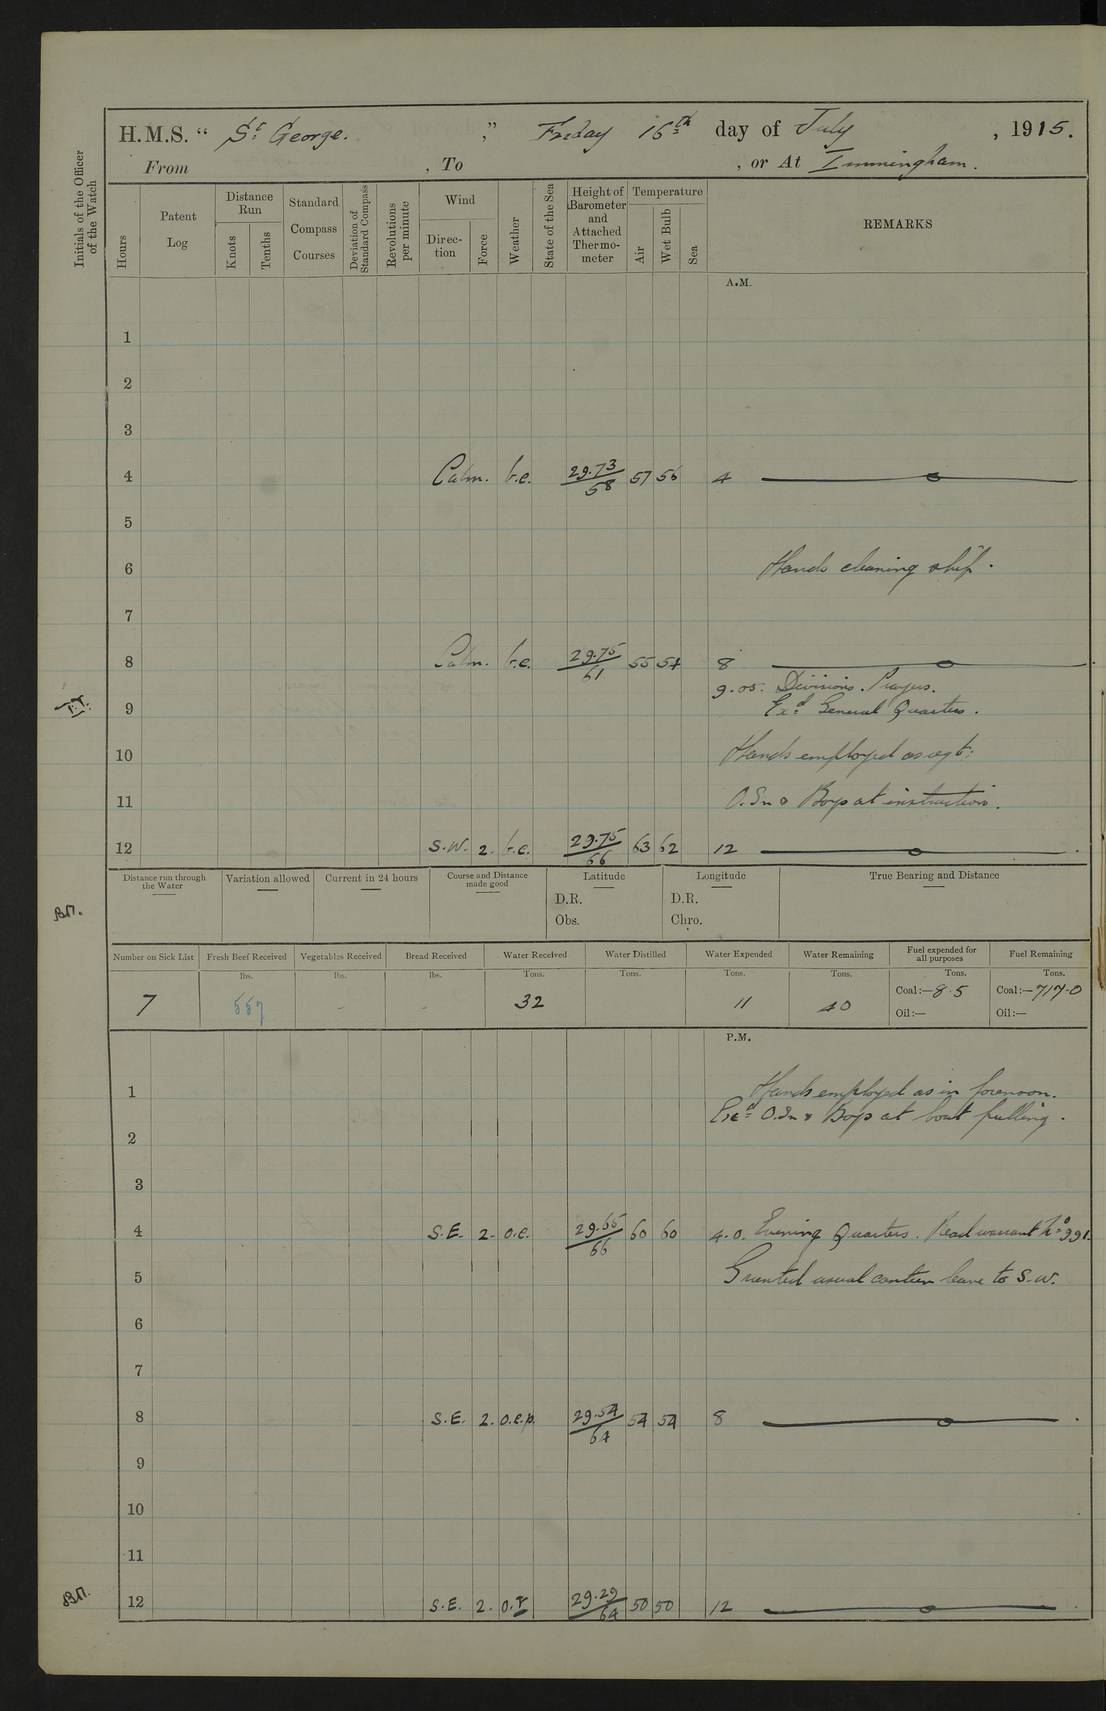 H.M.S. “ St George. ,” Friday 16th day of July , 1915.
From , To , or At Immingham.
Initials of the Officer of the Watch
Hours
Patent Log
Distance Run
Knots
Tenths
Standard Compass Courses
Deviation of Standard Compass
Revolutions per minute
Wind
Direction
Force
Weather
State of the Sea
Height of Barometer and Attached Thermometer
Temperature
Air
Wet Bulb
Sea
REMARKS
A.M.
1
2
3
4 Calm. b.c. 29.73/58 57 56 4
5
6 Hands cleaning ship.
7
8 Calm. b.c. 29.75/61 55 54 8
9.05. Divisions. Prayers.
9 Exd General Quarters.
10 Hands employed as reqt:
11 O.Sn & Boys at instruction.
12 S.W. 2. b.c. 29.75/66 63 62 12
Distance run through the Water
Variation allowed
Current in 24 hours
Course and Distance made good
Latitude
D.R.
Obs.
Longitude
D.R.
Chro.
True Bearing and Distance
B.M.
Number on Sick List
Fresh Beef Received
Vegetables Received
Bread Received
Water Received
Water Distilled
Water Expended
Water Remaining
Fuel expended for all purposes
Fuel Remaining
lbs. lbs. lbs. Tons. Tons. Tons. Tons. Tons. Tons.
7 557 - - 32 11 40 Coal:—8.5 Coal:—717.0
Oil:— Oil:—
P.M.
1 Hands employed as in forenoon.
Exd O.Sn & Boys at boat pulling.
2
3
4 S.E. 2. o.c. 29.65/66 60 60 4.0. Evening Quarters. Read warrant No 391.
5 Granted usual canteen leave to S.W.
6
7
8 S.E. 2. o.c.p. 29.54/64 54 54 8
9
10
11
B.M.
12 S.E. 2. o.r 29.29/64 50 50 12